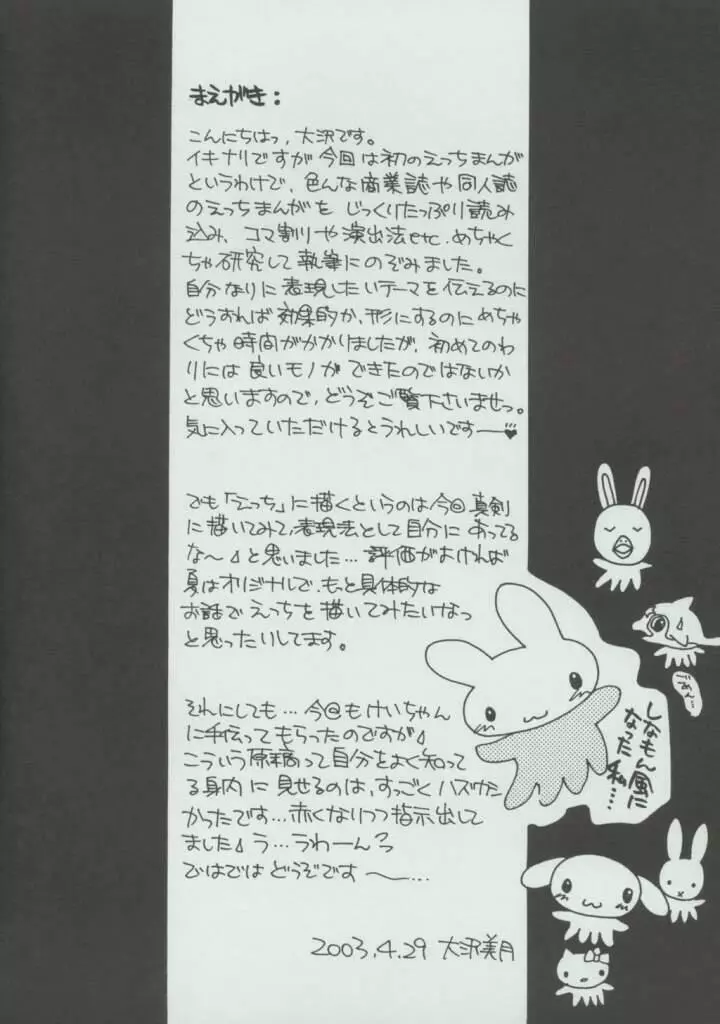 まえがき：
こんにちはっ、大沢です。
イキナリですが今回は初のえっちまんが
というわけで、色んな商業誌や同人誌
のえっちまんがを じっくりたっぷり読み
込み、コマ割りや演出法etc.めちゃく
ちゃ研究して執筆にのぞみました。
自分なりに表現したいテーマを伝えるのに
どうすれば効果的か、形にするのにめちゃ
くちゃ時間がかかりましたが、初めてのわ
りには良いモノができたのではないか
と思いますので、どうぞご覧下さいませっ。
気に入っていただけるとうれしいです──♥
でも「えっち」に描くというのは今回真剣
に描いてみて、表現法として自分にあってる
な〜♪と思いました…評価がよければ
夏はオリジナルで、もっと具体的な
お話でえっちを描いてみたいなっ
と思ったりしてます。
それにしても…今回もけいちゃん
に手伝ってもらったのですが♪
こういう原稿って自分をよく知って
る身内に見せるのは、すっごくハズかし
かったです…赤くなりつつ指示出して
ました♪う…うわーんっ
ではではどうぞです〜…
2003.4.29 大沢美月
ごめん…
しなもん風に
なった私…